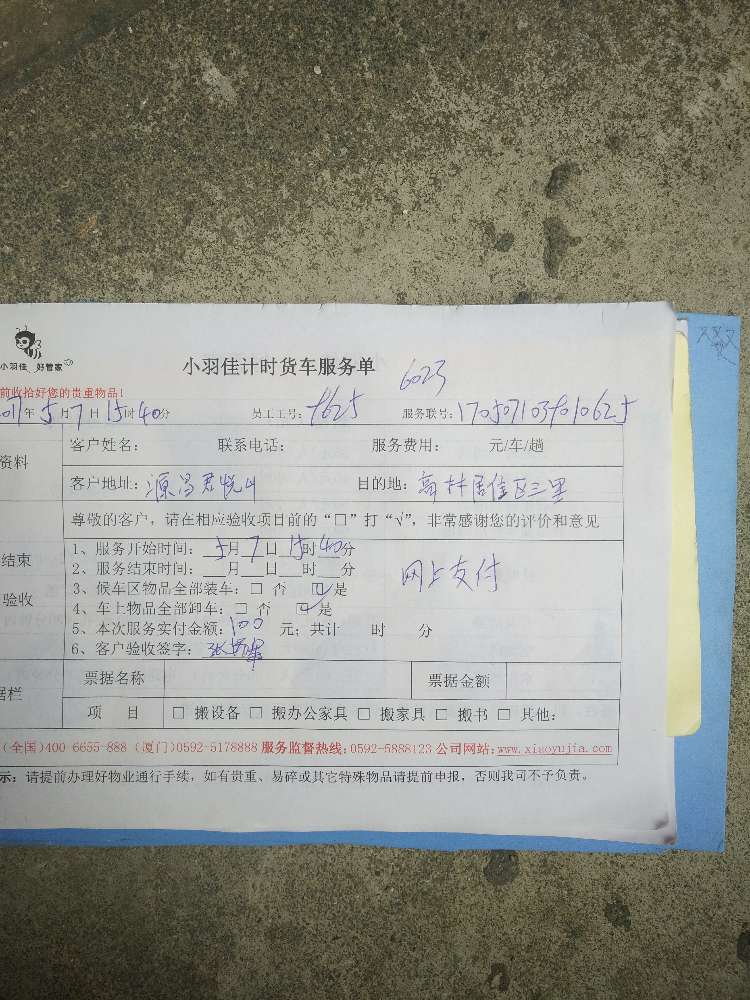 小羽佳 好管家
小羽佳计时货车服务单
6023
前收拾好您的贵重物品!
年5月7日15时40分 员工工号: 服务联号:1705071039010625
资料
客户姓名: 联系电话: 服务费用: 元/车/趟
客户地址:源昌君悦山 目的地:高林居住区三里
尊敬的客户,请在相应验收项目前的“□”打“√”,非常感谢您的评价和意见
结束
验收
1、服务开始时间:5月7日15时40分
2、服务结束时间: 月 日 时 分
3、候车区物品全部装车:□ 否 ☑是
4、车上物品全部卸车:□ 否 ☑是
网上支付
5、本次服务实付金额:100 元;共计 时 分
6、客户验收签字:
据栏
票据名称 票据金额
项 目 □ 搬设备 □ 搬办公家具 □ 搬家具 □ 搬书 □ 其他:
(全国)400-6655-888 (厦门)0592-5178888 服务监督热线:0592-5888123 公司网站:www.xiaoyujia.com
示:请提前办理好物业通行手续,如有贵重、易碎或其它特殊物品请提前申报,否则我司不予负责。